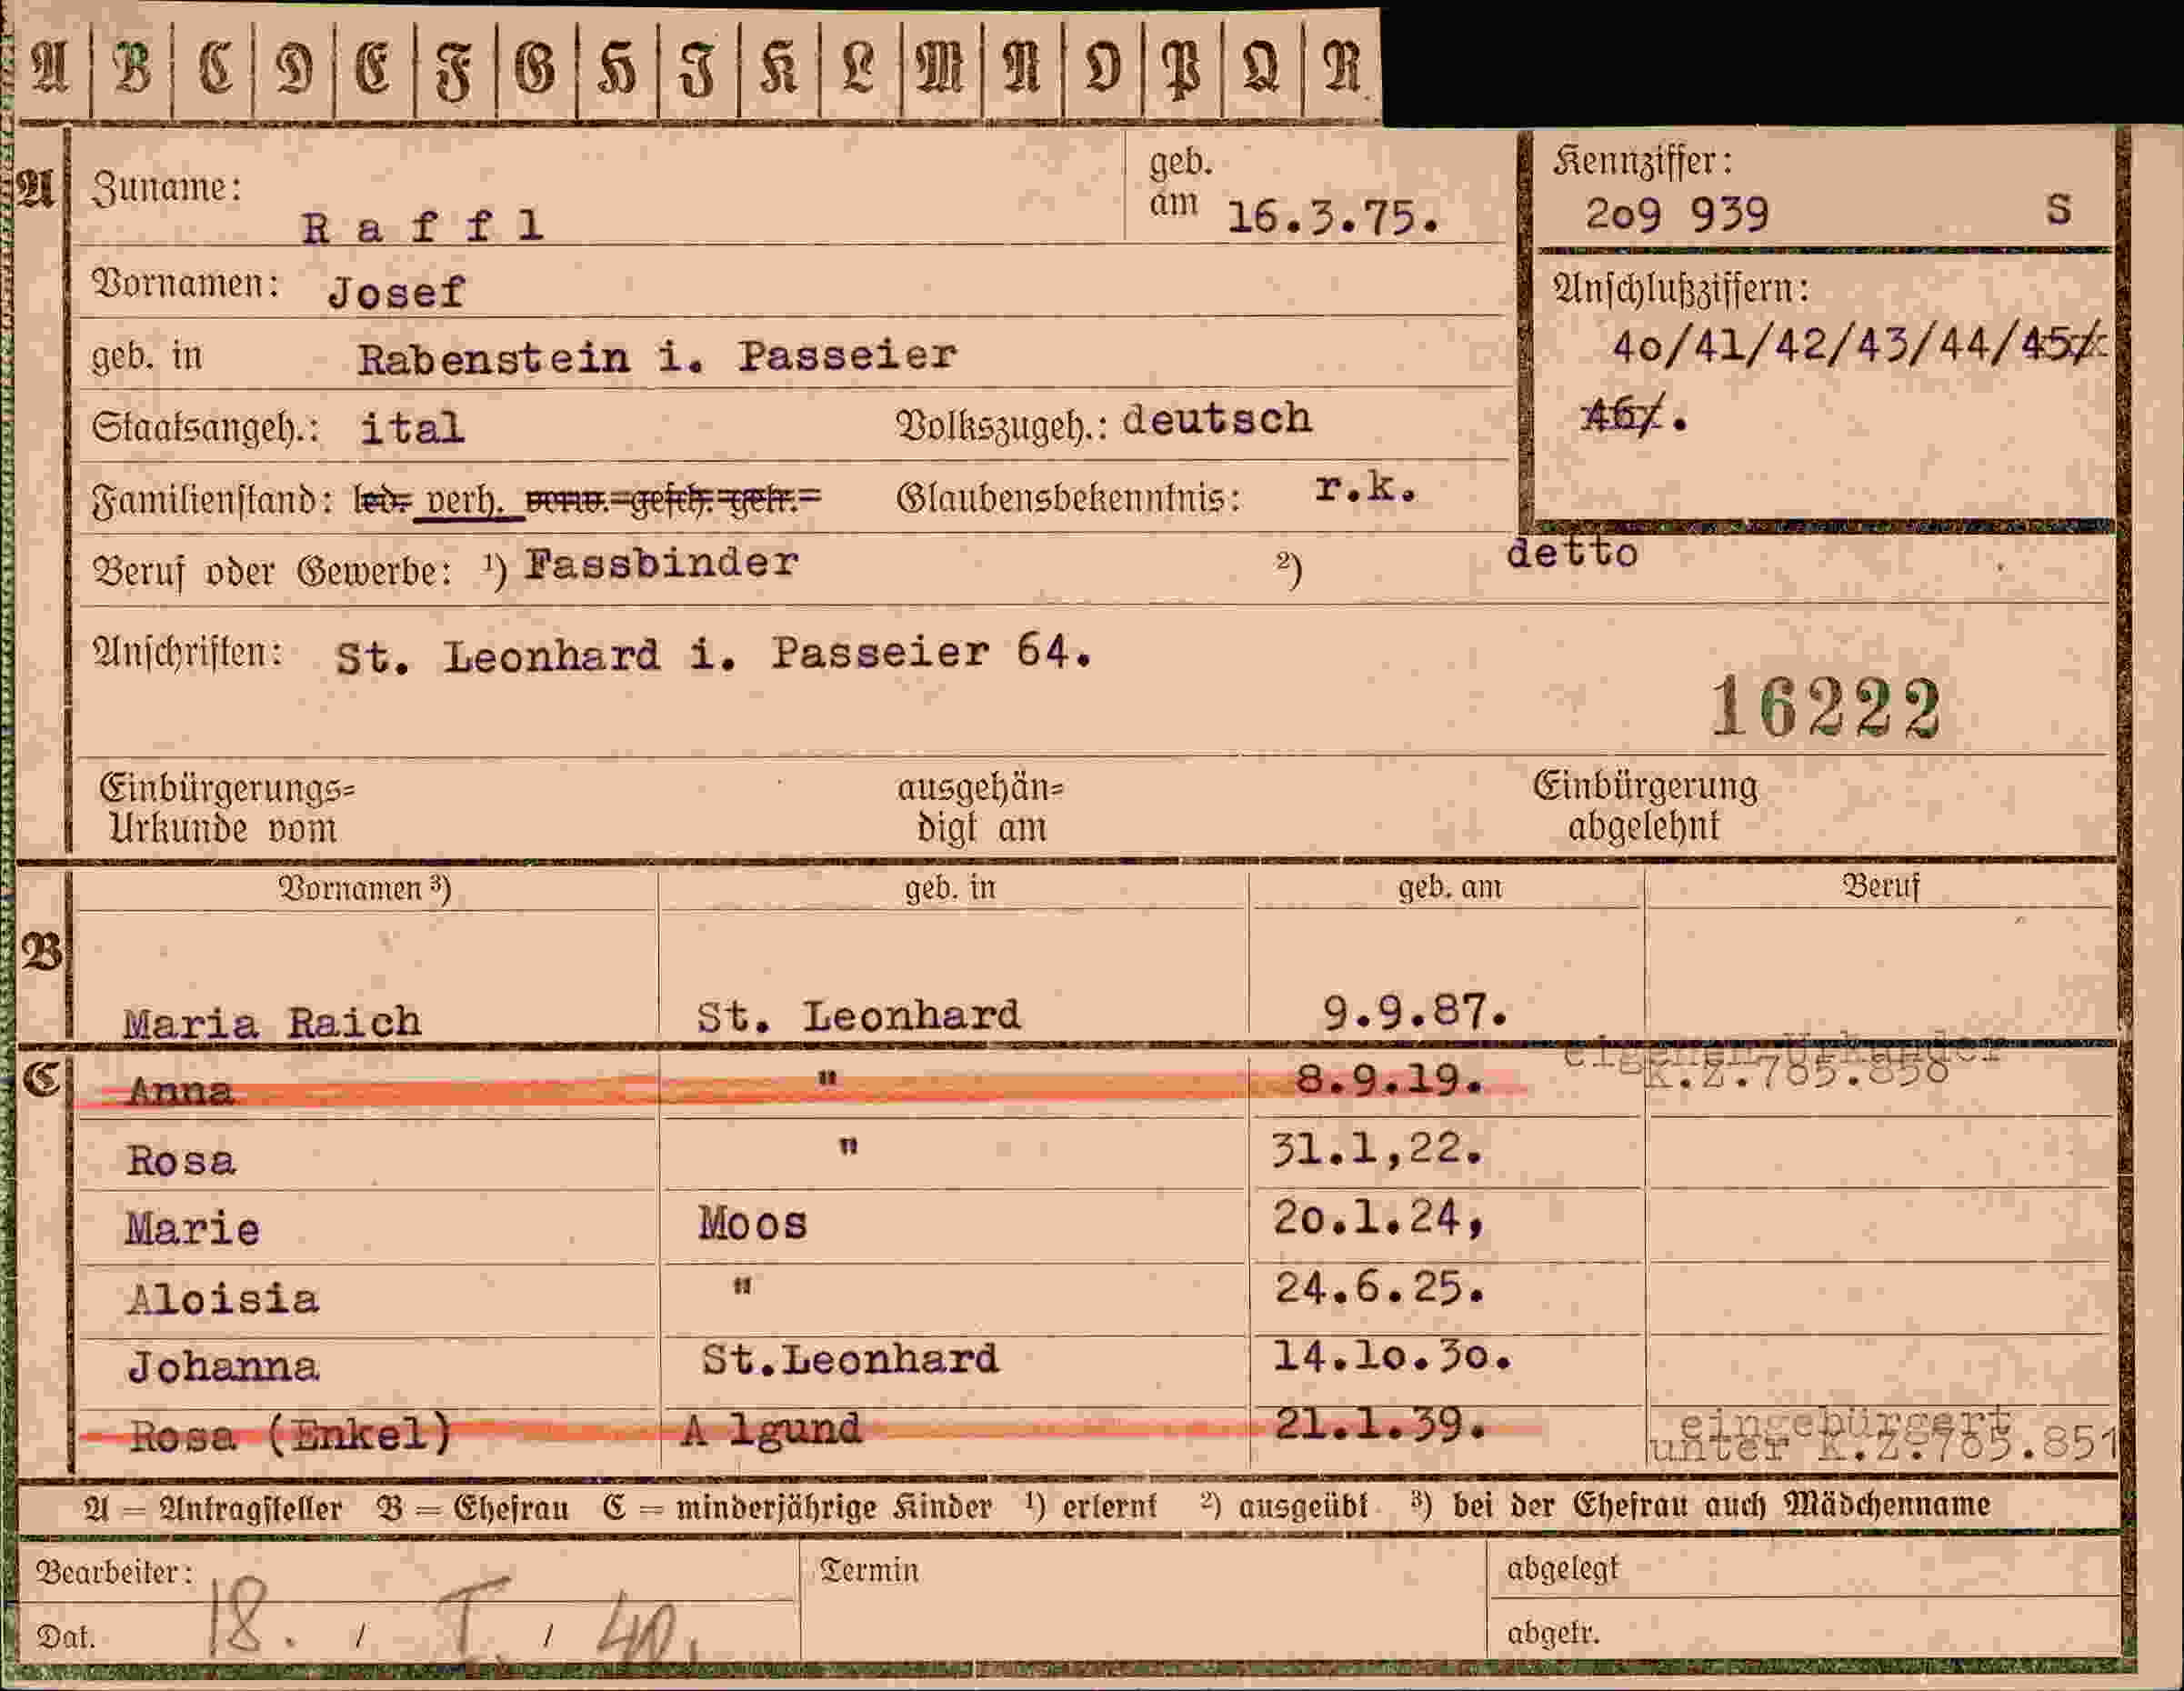 A B C D E F G H J K L M N O P Q R
A Zuname: R a f f l geb. am 16.3.75.
Kennziffer: 2o9 939 S
Vornamen: Josef
Anschlußziffern:
4o/41/42/43/44/45/
46/.
geb. in Rabenstein i. Passeier
Staatsangeh.: ital Volkszugeh.: deutsch
Familienstand: led. verh. verw. gesch. getr. Glaubensbekenntnis: r.k.
Beruf oder Gewerbe: 1) Fassbinder 2) detto
Anschriften: St. Leonhard i. Passeier 64.
16222
Einbürgerungs= ausgehän= Einbürgerung
Urkunde vom digt am abgelehnt
Vornamen 3) geb. in geb. am Beruf
B
Maria Raich St. Leonhard 9.9.87.
eigenen Urkunde
C Anna " 8.9.19. K.Z.785.850
Rosa " 31.1,22.
Marie Moos 2o.1.24,
Aloisia " 24.6.25.
Johanna St.Leonhard 14.1o.3o.
Rosa (Enkel) A lgund 21.1.39. eingebürgert
unter K.Z.785.851
A = Antragsteller B = Ehefrau C = minderjährige Kinder 1) erlernt 2) ausgeübt 3) bei der Ehefrau auch Mädchenname
Bearbeiter: Termin abgelegt
Dat. 18. / I. / 40. abgetr.